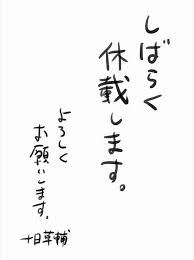 しばらく
休載します。
よろしく
お願いします。